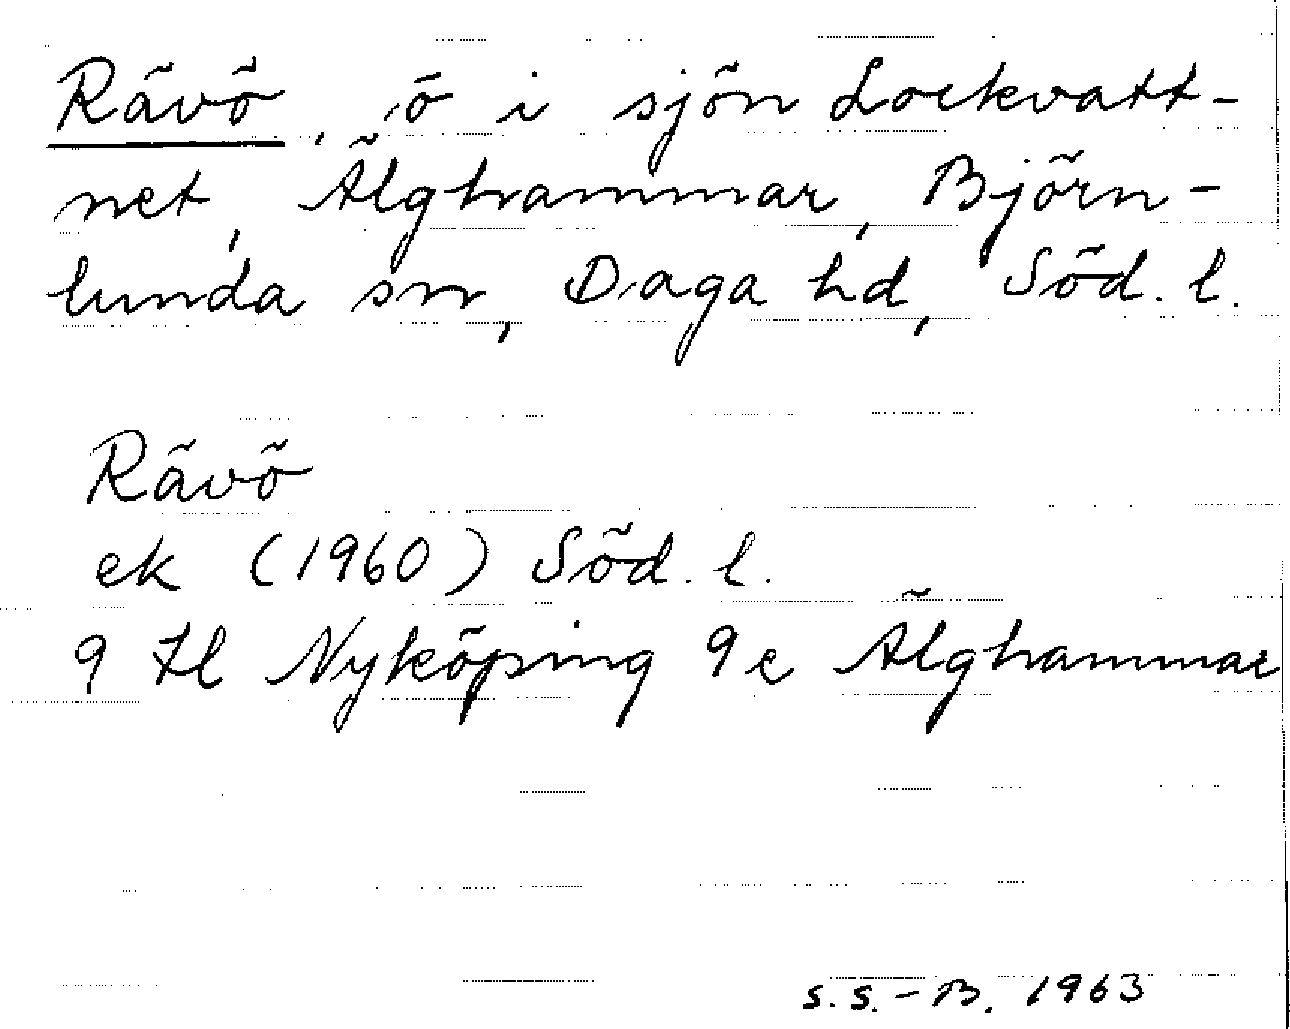 Rävö, ö i sjön Lockvatt-
net, Älghammar, Björn-
lunda sn, Daga hd, Söd. l.
Rävö
ek (1960) Söd. l.
9 H Nyköping 9 e Älghammar
S.S.-B. 1963